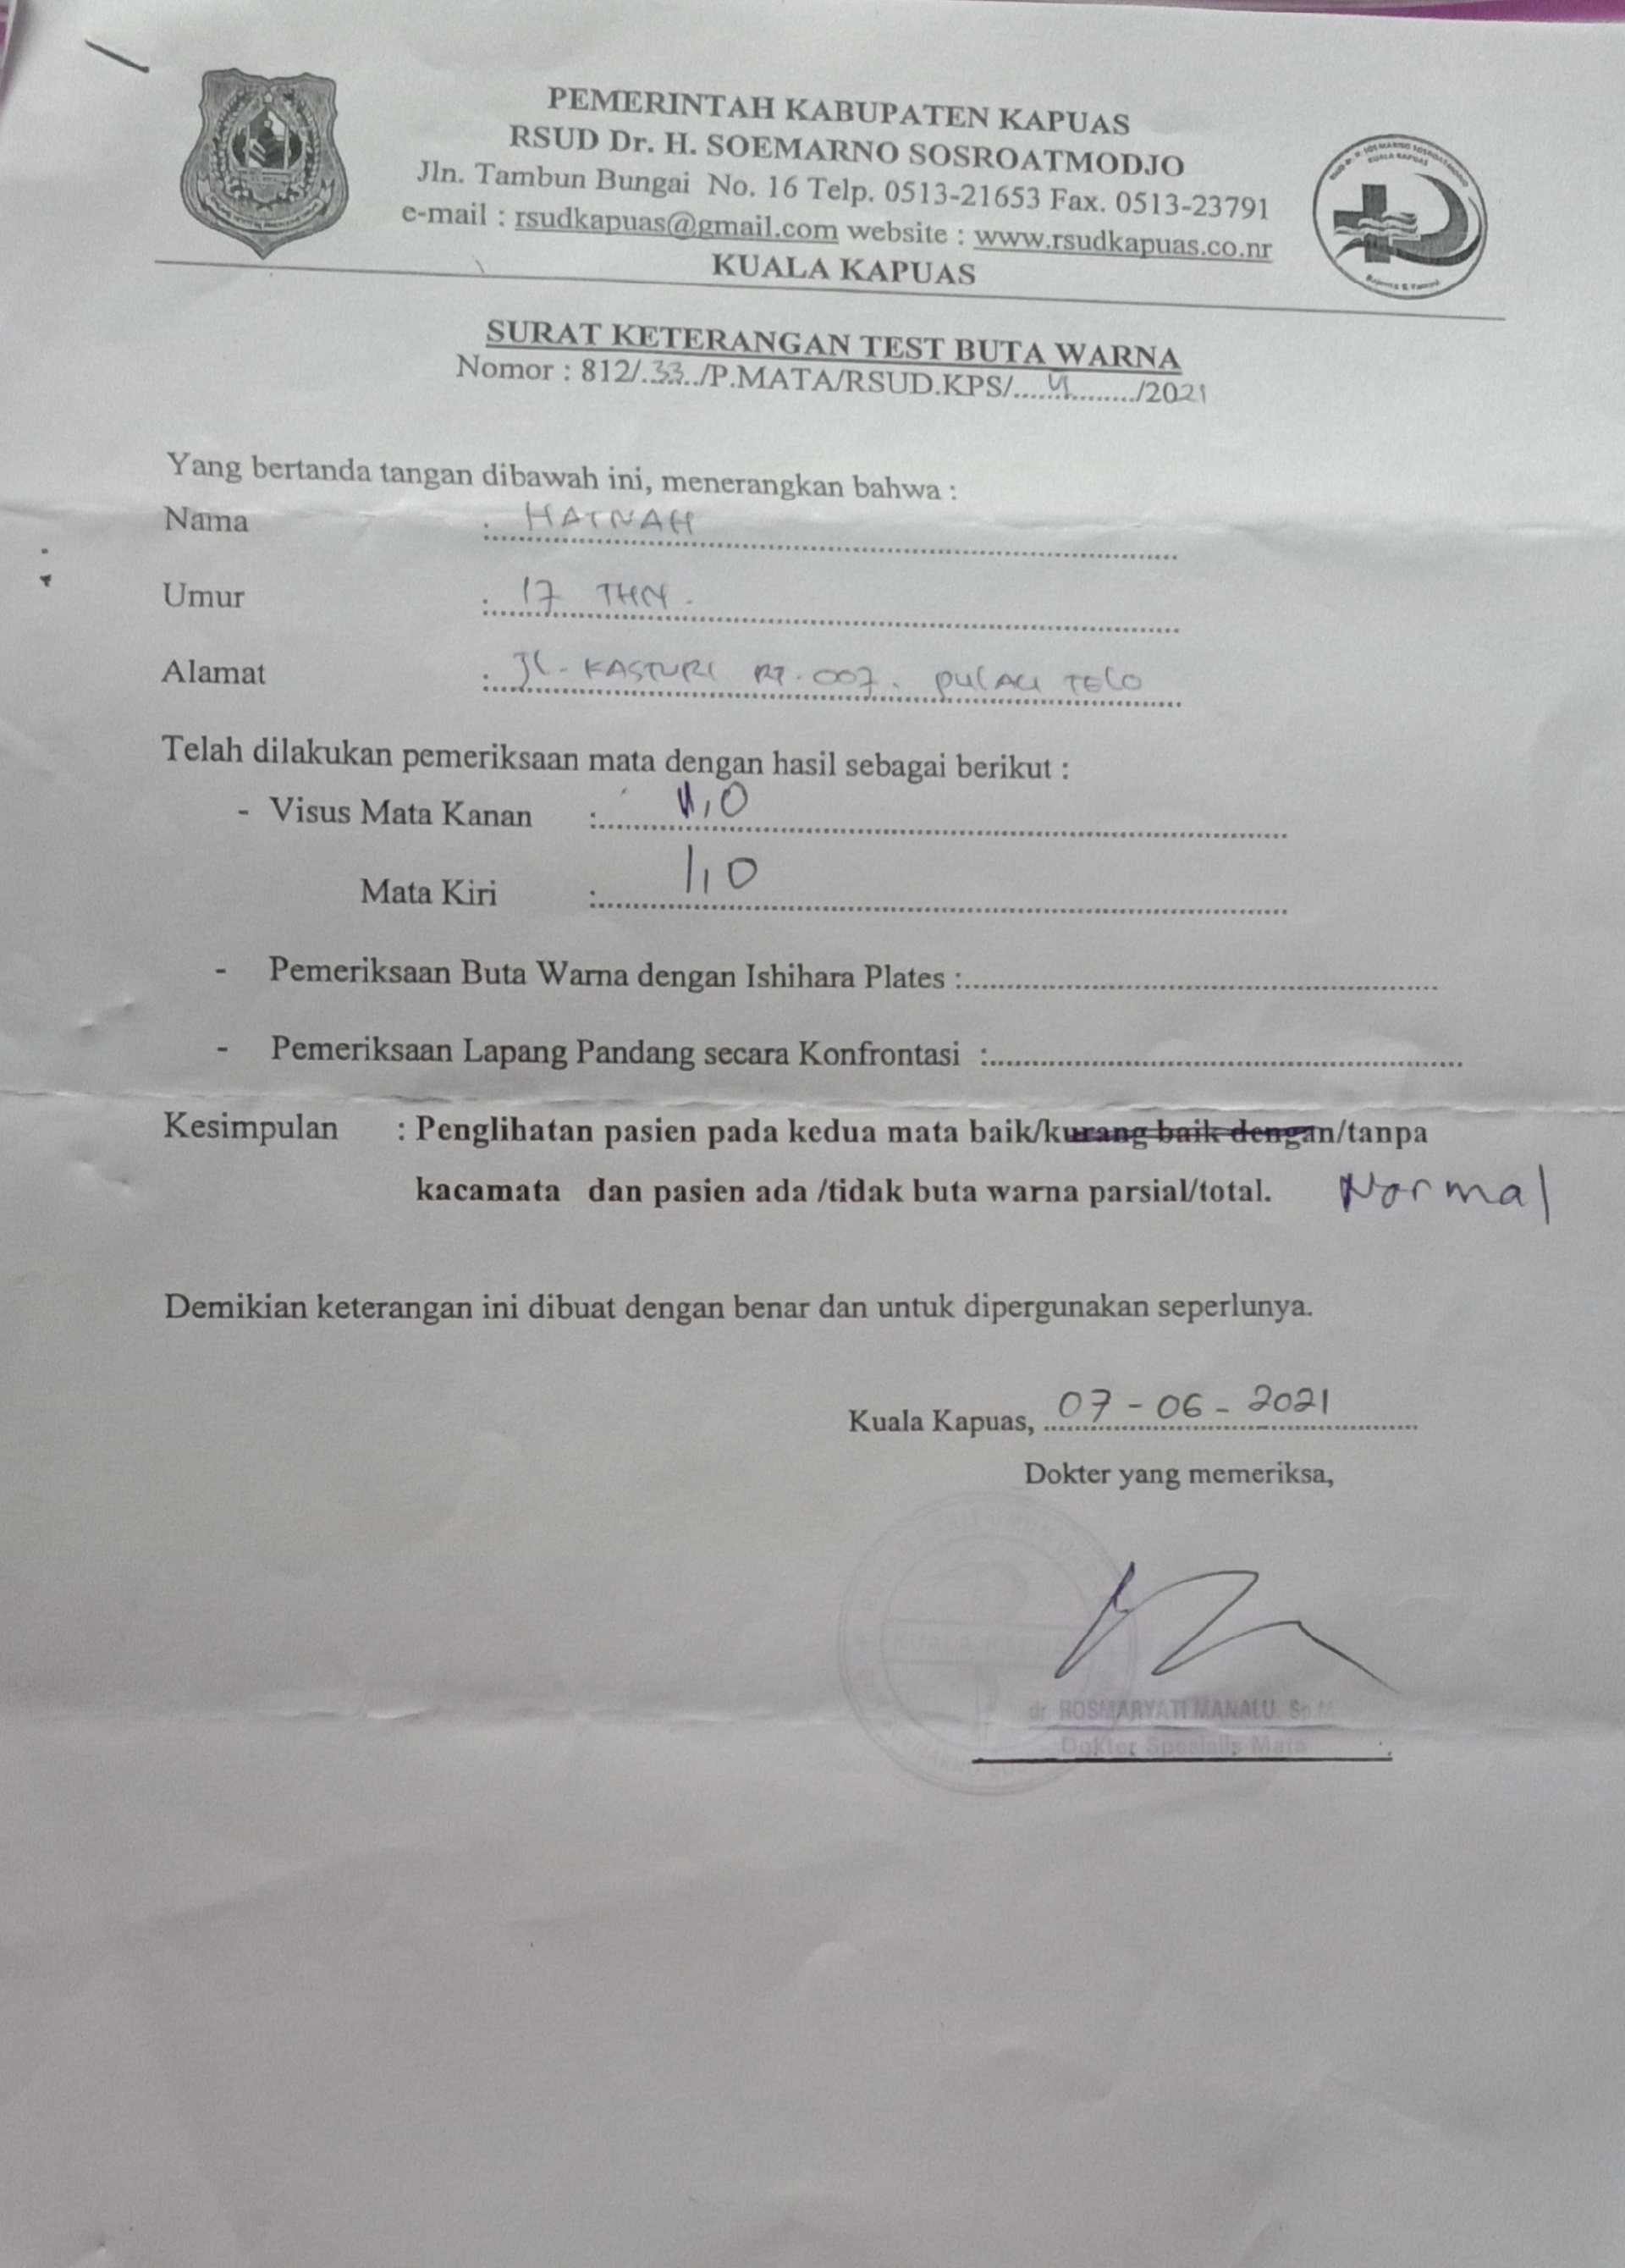 PEMERINTAH KABUPATEN KAPUAS
RSUD Dr. H. SOEMARNO SOSROATMODJO
Jln. Tambun Bungai No. 16 Telp. 0513-21653 Fax. 0513-23791
e-mail : rsudkapuas@gmail.com website : www.rsudkapuas.co.nr
KUALA KAPUAS
SURAT KETERANGAN TEST BUTA WARNA
Nomor : 812/.33../P.MATA/RSUD.KPS/......../2021
Yang bertanda tangan dibawah ini, menerangkan bahwa :
Nama : HATNAH
Umur : 17 THN.
Alamat : JL. KASTURI RT. 007. PULAU TELO
Telah dilakukan pemeriksaan mata dengan hasil sebagai berikut :
- Visus Mata Kanan : 1,0
Mata Kiri : 1,0
- Pemeriksaan Buta Warna dengan Ishihara Plates :
- Pemeriksaan Lapang Pandang secara Konfrontasi :
Kesimpulan : Penglihatan pasien pada kedua mata baik/kurang baik dengan/tanpa
kacamata dan pasien ada /tidak buta warna parsial/total. Normal
Demikian keterangan ini dibuat dengan benar dan untuk dipergunakan seperlunya.
Kuala Kapuas, 07-06-2021
Dokter yang memeriksa,
dr. ROSMARYATI MANALU. Sp.M
Dokter Spesialis Mata